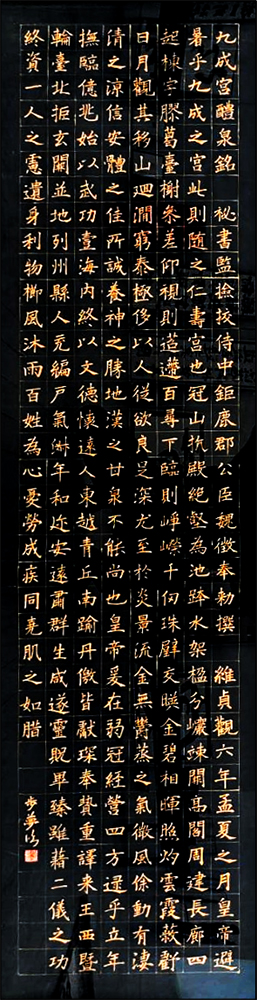 九成宮醴泉銘 秘書監撿挍侍中鉅鹿郡公臣魏徵奉勅撰 維貞觀六年孟夏之月皇帝避
暑乎九成之宮此則隨之仁壽宮也冠山抗殿絕壑為池跨水架楹分巖竦闕高閣周建長廊四
起棟宇膠葛臺榭參差仰視則迢遰百尋下臨則崢嶸千仞珠璧交暎金碧相暉照灼雲霞蔽虧
日月觀其移山迴澗窮泰極侈以人從欲良足深尤至於炎景流金無鬱蒸之氣微風徐動有淒
清之涼信安體之佳所誠養神之勝地漢之甘泉不能尚也皇帝爰在弱冠經營四方逮乎立年
撫臨億兆始以武功壹海內終以文德懷遠人東越青丘南踰丹儌皆獻琛奉贄重譯来王西暨
輪臺北拒玄闕並地列州縣人充編戶氣淑年和迩安遠肅群生咸遂靈貺畢臻雖藉二儀之功
終資一人之慮遺身利物櫛風沐雨百姓為心憂勞成疾同堯肌之如腊